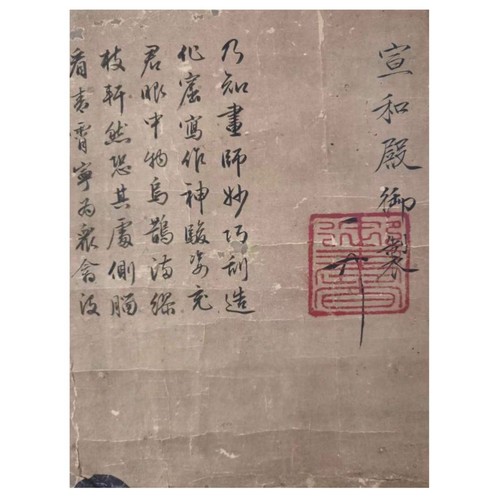 宣和殿御製
乃知畫師妙巧刮造
化窟寫作神駿姿充
君眼中物烏鵲滿
枝軒然恐其處側腦
看青霄寧為衆禽没